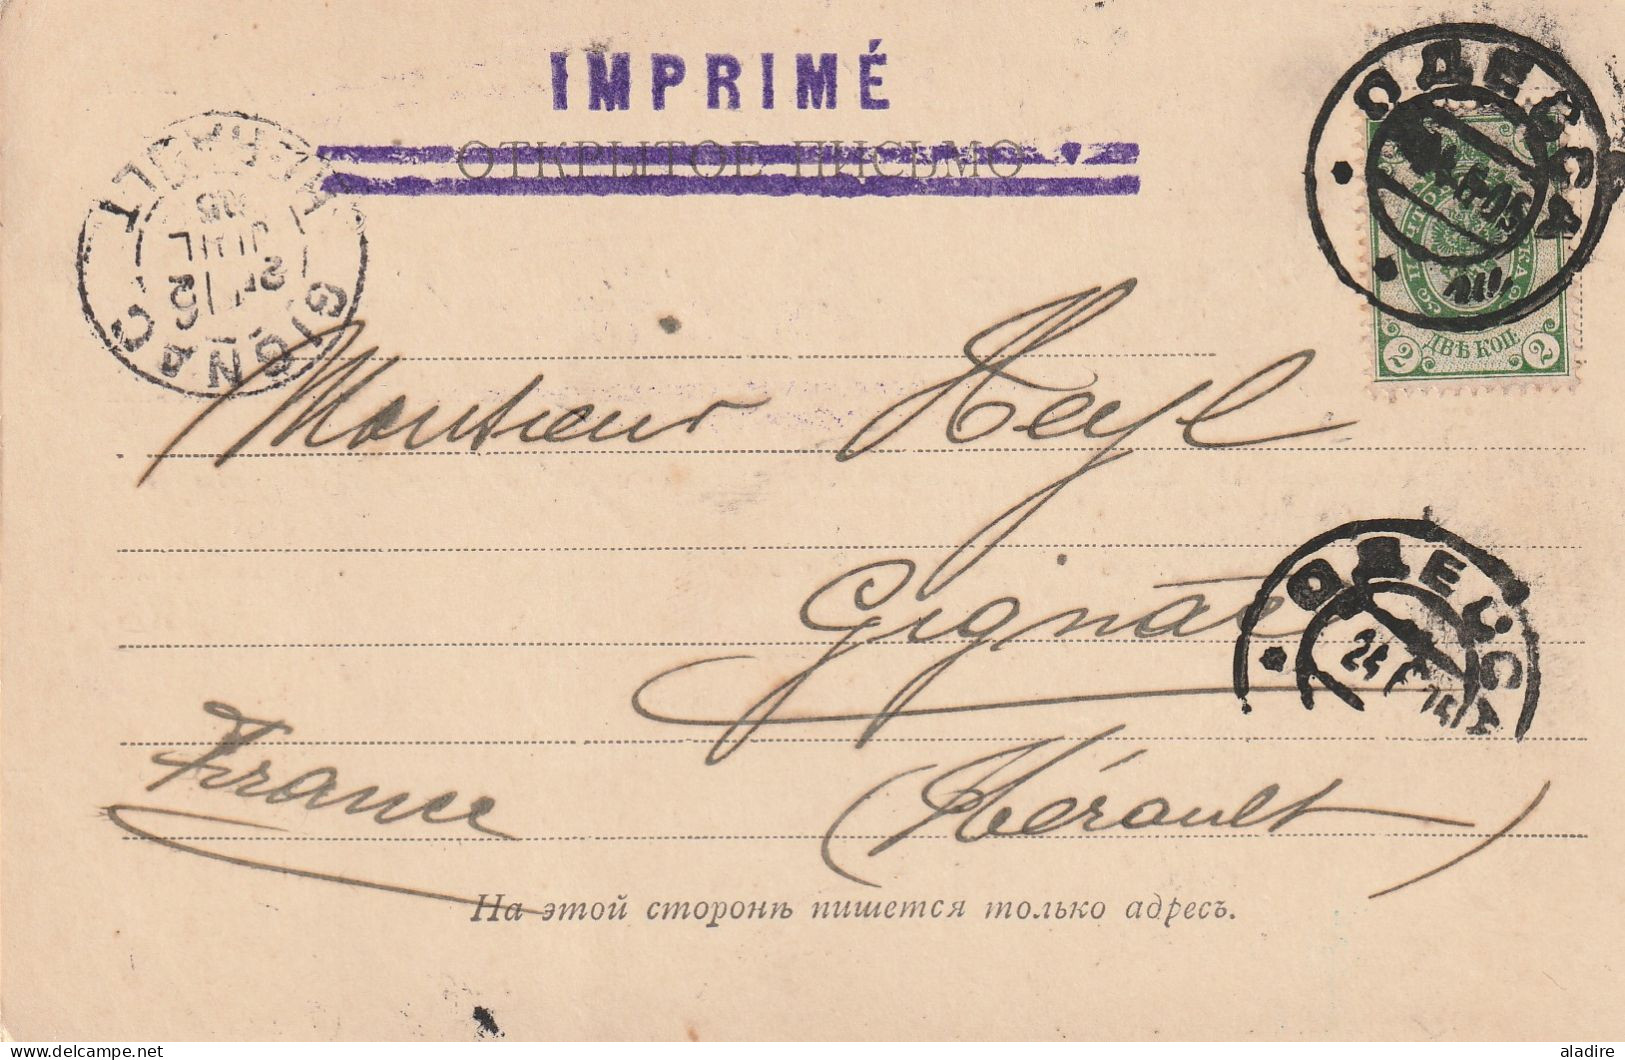 IMPRIMÉ
ОТКРЫТОЕ ПИСЬМО
ОДЕССА
6.05
2 ДВѢ КОП. 2
GIGNAC
HÉRAULT
12
JUIL
05
Monsieur Heyl
Gignac
ОДЕССА
24
France
(Hérault)
На этой сторонѣ пишется только адресъ.
aladire